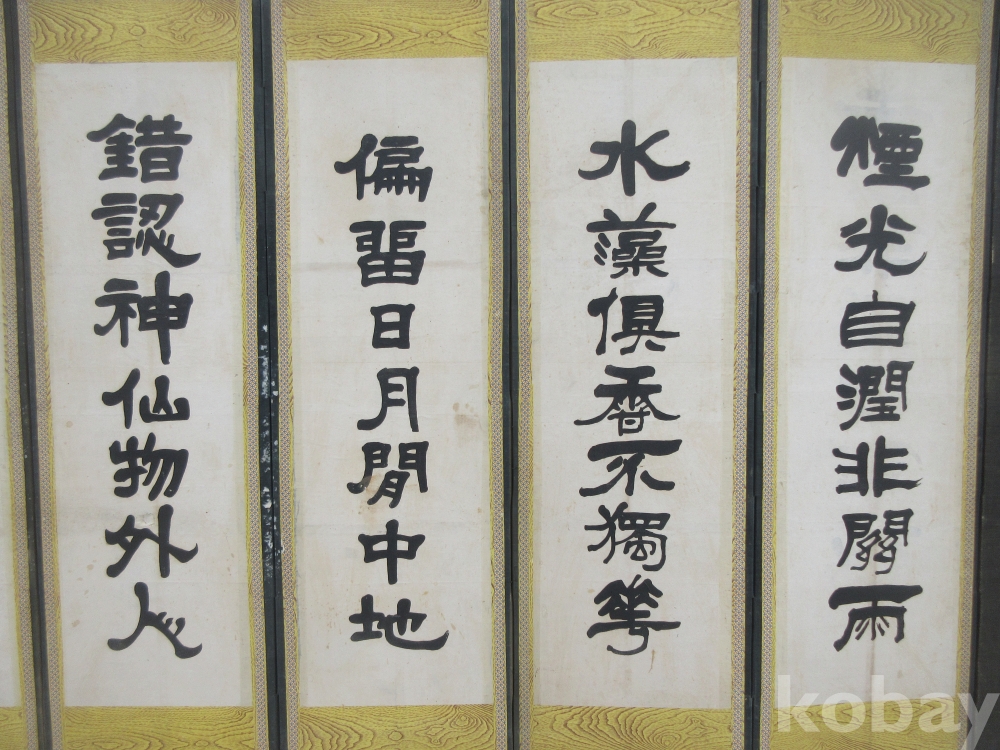 煙光自潤非關雨
水藻俱香不獨花
偏留日月閒中地
錯認神仙物外人
kobay